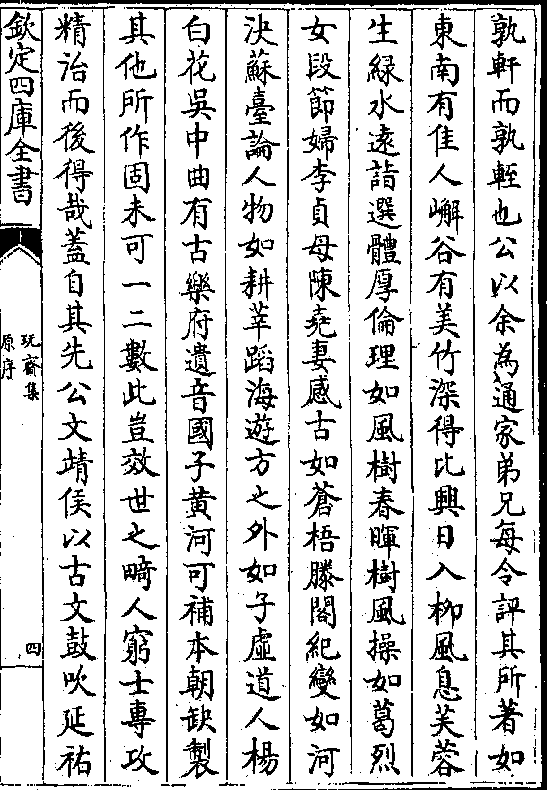 孰軒而孰輊也公以余為通家弟兄每令評其所著如
東南有佳人嶰谷有美竹深得比興日入柳風息芙蓉
生綠水遠詣選體厚倫理如風樹春暉樹風操如葛烈
女段節婦李貞母陳堯妻感古如蒼梧滕閣紀變如河
決蘇臺論人物如耕莘蹈海遊方之外如子虛道人楊
白花吳中曲有古樂府遺音國子黄河可補本朝缺製
其他所作固未可一二數此豈效世之畸人窮士專攻
精治而後得哉蓋自其先公文靖侯以古文鼓吹延祐
欽定四庫全書
玩齋集
原序
四